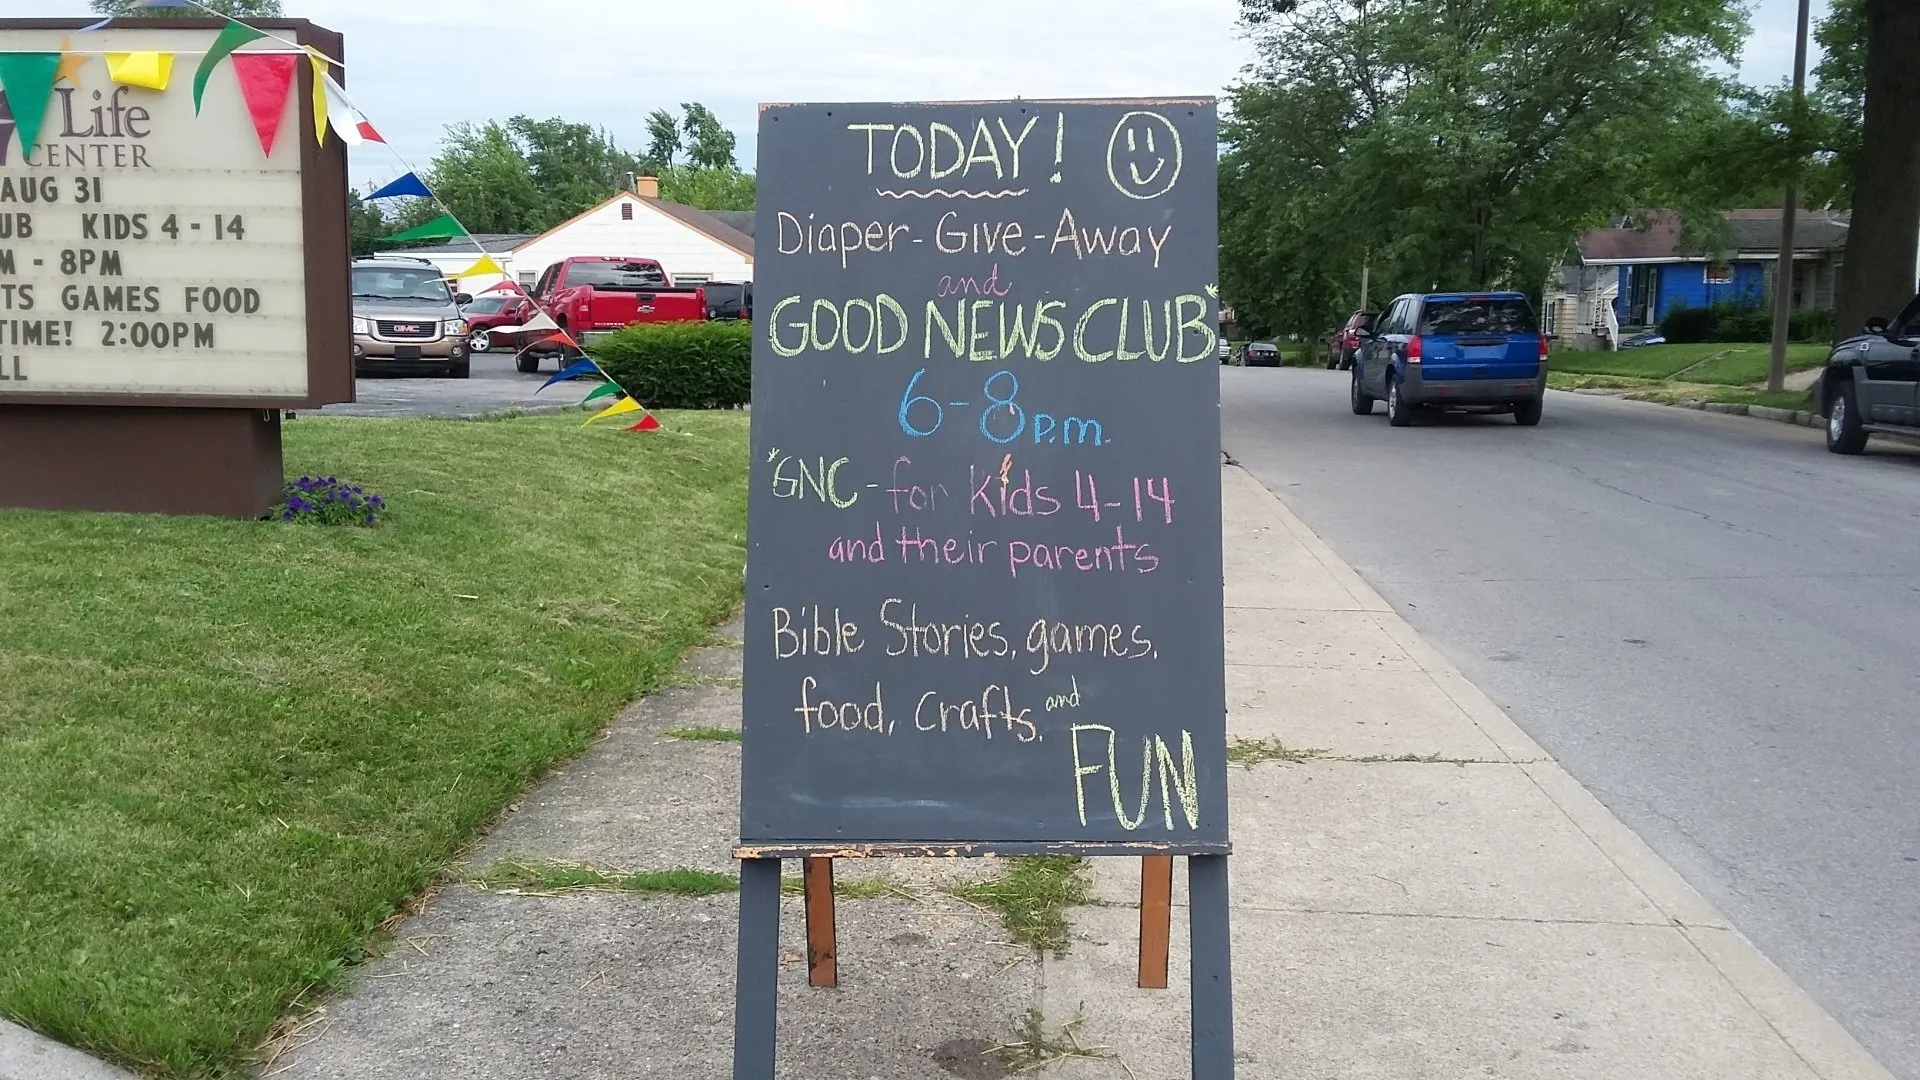 Life
CENTER
AUG 31
UB KIDS 4 - 14
M - 8PM
TS GAMES FOOD
TIME! 2:00PM
LL
TODAY!
Diaper-Give-Away
and
GOOD NEWS CLUB*
6-8p.m.
*GNC-for Kids 4-14
and their parents
Bible Stories, games,
food, crafts, and
FUN
GMC